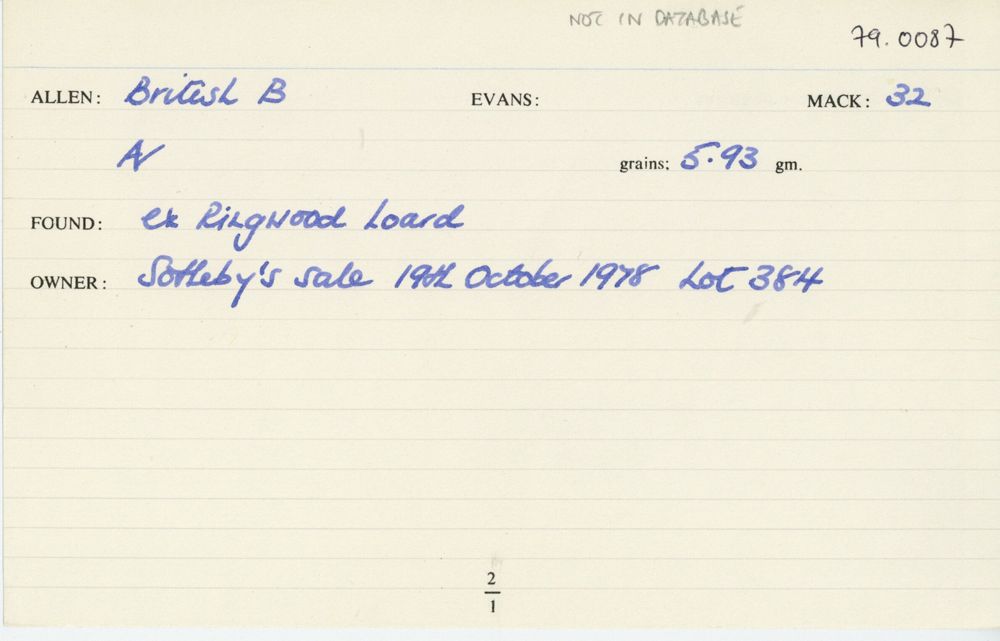 NOT IN DATABASE
79.0087
ALLEN: British B EVANS: MACK: 32
AV grains: 5.93 gm.
FOUND: ex Ringwood hoard
OWNER: Sotheby's sale 19th October 1978 Lot 384
2
1